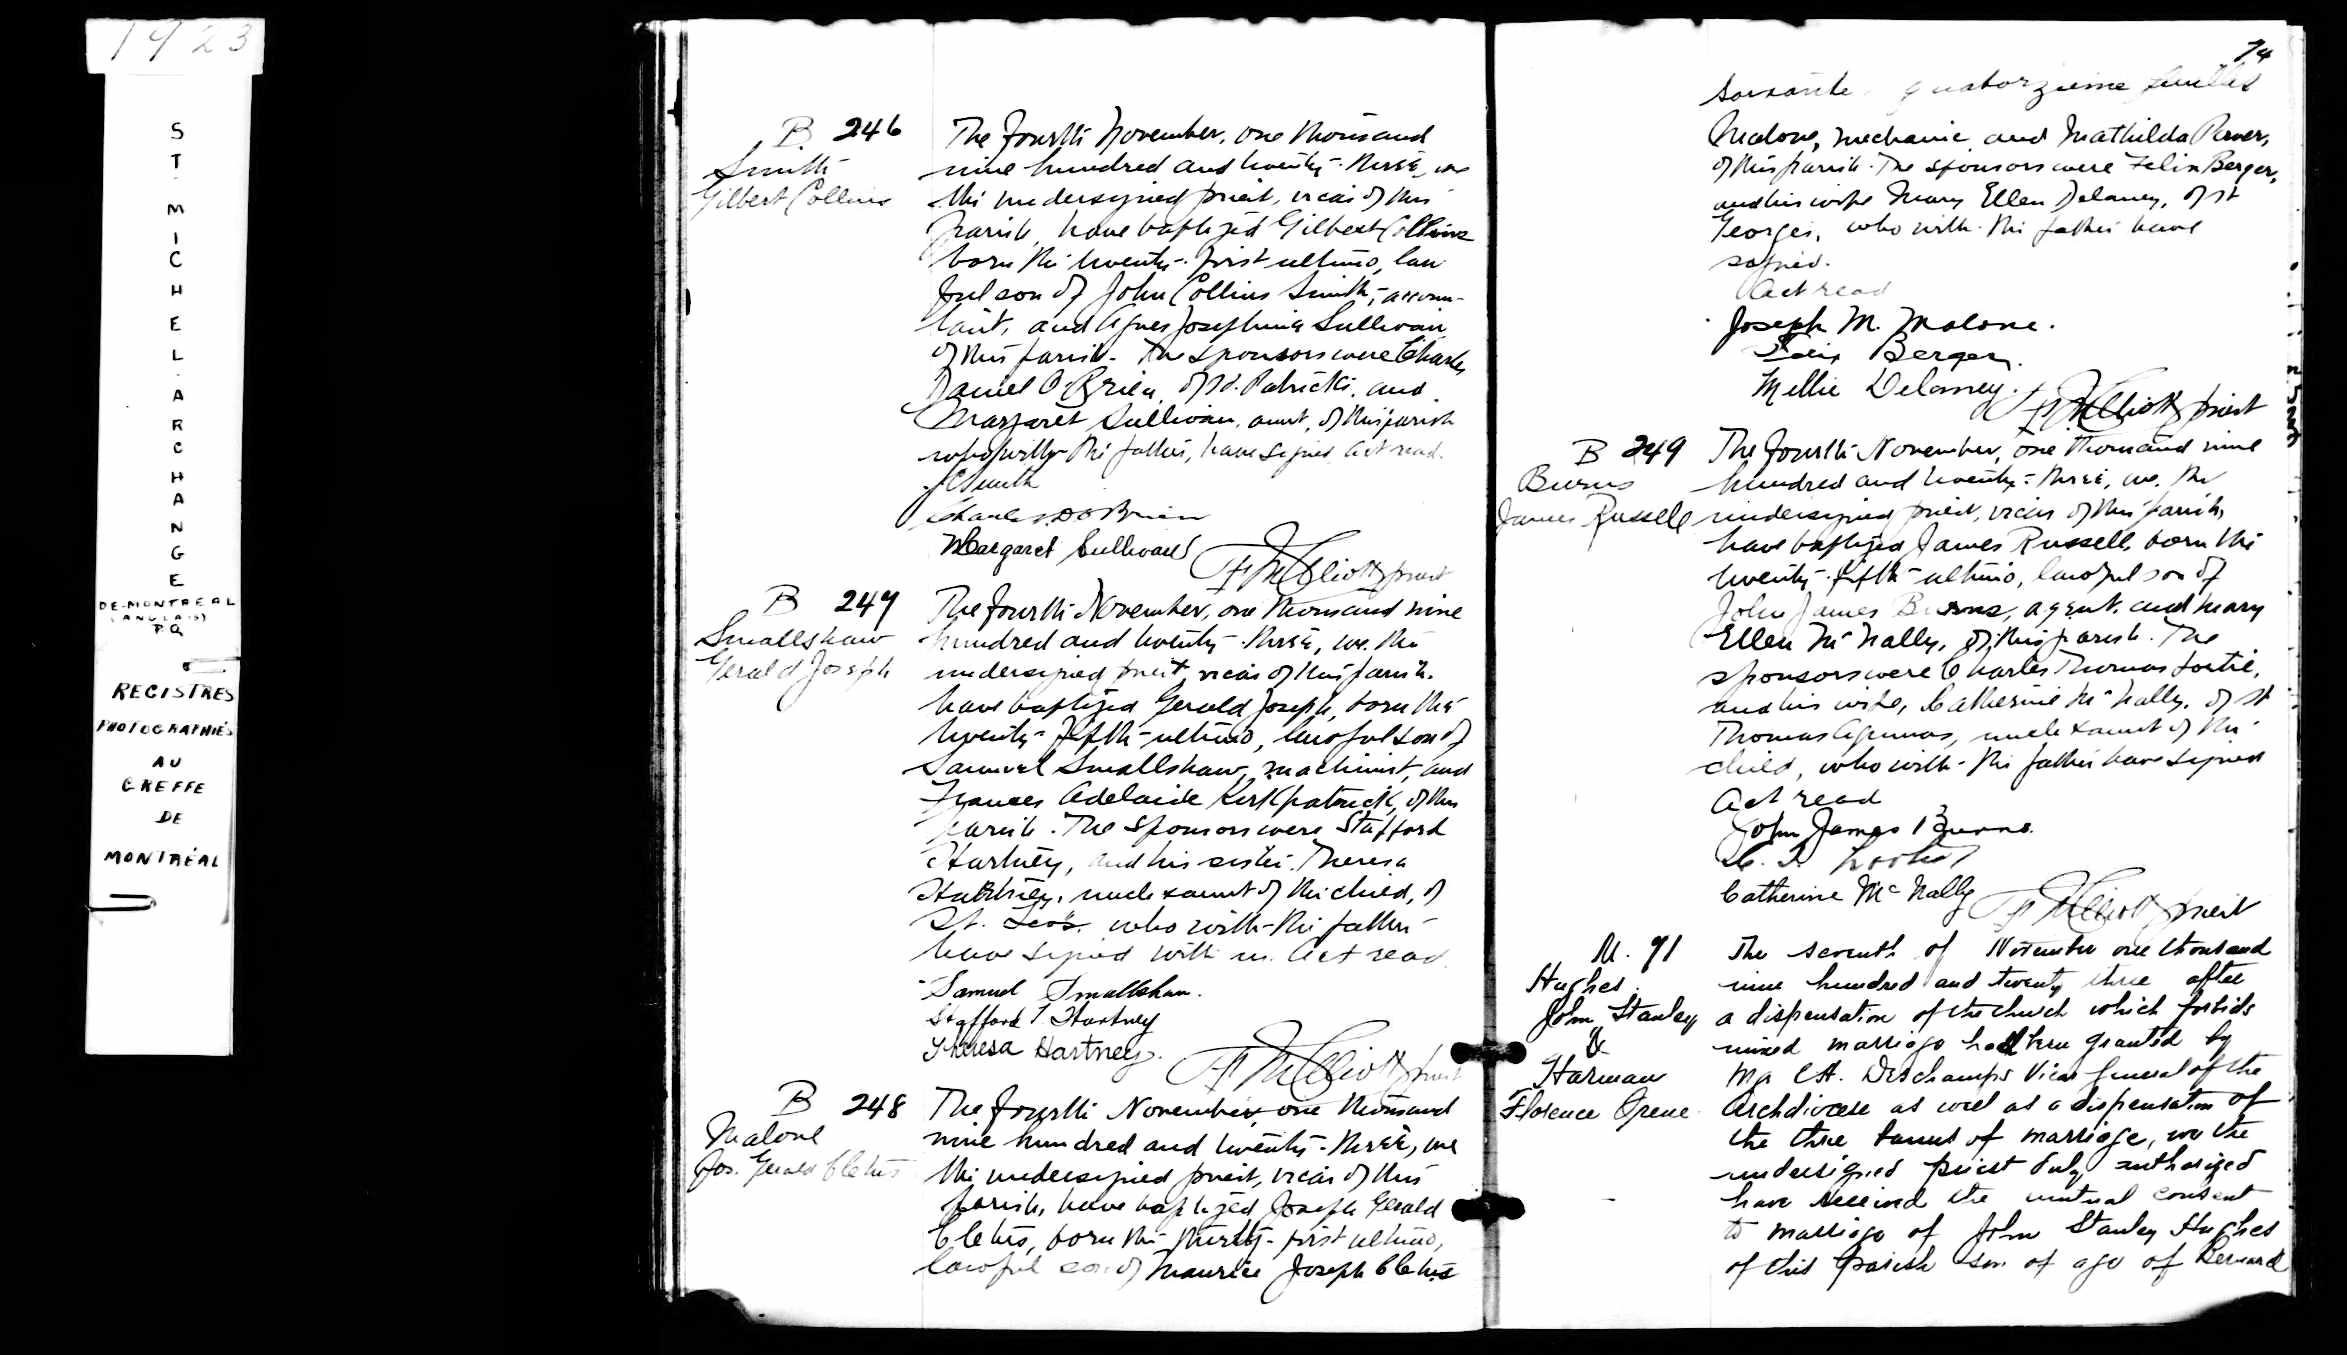 1923
ST. MICHEL. ARCHANGE
DE-MONTREAL
(ANGLAIS)
P.Q
REGISTRES
PHOTOGRAPHIÉS
AU
GREFFE
DE
MONTRÉAL
B 246
Smith
Gilbert Collins
The Fourth November, one thousand
nine hundred and twenty-three, we
the undersigned priest, vicar of this
parish, have baptized Gilbert Collins
born the twenty-first ultimo, law
ful son of John Collins Smith, accoun-
tant, and Agnes Josephine Sullivan
of this parish. The sponsors were Charles
Daniel O'Brien, of St. Patrick's, and
Margaret Sullivan, aunt, of this parish
who with the father, have signed. Act read.
JC Smith
Charles D O'Brien
Margaret Sullivan
priest
B 247
Smallshaw
Gerald Joseph
The Fourth November, one thousand nine
hundred and twenty-three, we, the
undersigned priest, vicar of this parish,
have baptized Gerald Joseph, born the
twenty-fifth ultimo, lawful son of
Samuel Smallshaw, machinist, and
Frances Adelaide Kirkpatrick, of this
parish. The sponsors were Stafford
Hartney, and his sister Theresa
Hartney, uncle & aunt of the child, of
St. Leo's, who with the father
have signed with us. Act read.
Samuel Smallshaw.
Stafford Hartney
Theresa Hartney.
priest
B 248
Malone
Jos. Gerald Cletus
The Fourth November, one thousand
nine hundred and twenty-three, we
the undersigned priest, vicar of this
parish, have baptized Joseph Gerald
Cletus, born the thirty-first ultimo,
lawful son of Maurice Joseph Cletus
74
Soixante quatorzième feuillet
Malone, mechanic, and Mathilda
of this parish. The sponsors were Felix Berger,
and his wife Mary Ellen Delaney, of St
Georges, who with the father have
signed.
Act read
Joseph M. Malone.
Felix Berger.
Mellie Delaney.
priest
B 249
Burns
James Russell
The Fourth November, one thousand nine
hundred and twenty-three, we, the
undersigned priest, vicar of this parish,
have baptized James Russell, born the
twenty-fifth ultimo, lawful son of
John James Burns, agent, and Mary
Ellen McNally, of this parish. The
sponsors were Charles Thomas
and his wife, Catherine McNally, of St
Thomas Aquinas, uncle & aunt of the
child, who with the father have signed
Act read
John James Burns.
C. T.
Catherine McNally
priest
M. 71
Hughes
John Stanley
&
Harman
Florence Irene
The seventh of November one thousand
nine hundred and twenty three after
a dispensation of the church which forbids
mixed marriage had been granted by
Mgr Deschamps Vicar General of the
Archdiocese as well as a dispensation of
the three banns of marriage, we the
undersigned priest duly authorized
have received the mutual consent
to marriage of John Stanley Hughes
of this parish son of age of Bernard